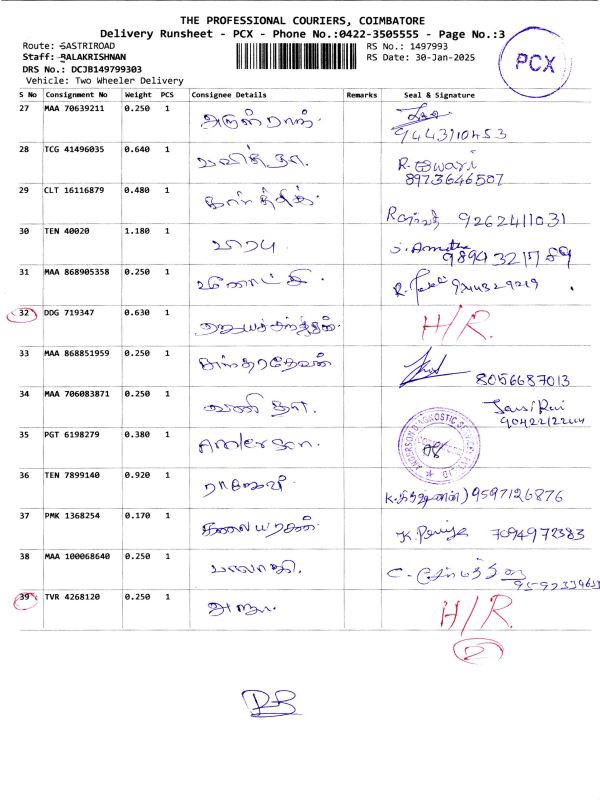 THE PROFESSIONAL COURIERS, COIMBATORE
Delivery Runsheet - PCX - Phone No.:0422-3505555 - Page No.:3
Route: SASTRIROAD
RS No.: 1497993
Staff: BALAKRISHNAN
RS Date: 30-Jan-2025
DRS No.: DCJB149799303
Vehicle: Two Wheeler Delivery
PCX
S No Consignment No Weight PCS Consignee Details Remarks Seal & Signature
27 MAA 70639211 0.250 1 அருள்ராஜ்.
9443110453
28 TCG 41496035 0.640 1
8973646507
29 CLT 16116879 0.480 1 கார்த்திக்.
9262411031
30 TEN 40020 1.180 1 பாபு.
31 MAA 868905358 0.250 1
32 DDG 719347 0.630 1 H/R.
33 MAA 868851959 0.250 1
8056687013
34 MAA 706083871 0.250 1 வனிதா.
35 PGT 6198279 0.380 1 Anderson.
ANDERSON DIAGNOSTIC SERVICES PVT LTD
36 TEN 7899140 0.920 1 9597126876
37 PMK 1368254 0.170 1 கலையரசன். 7094972383
38 MAA 100068640 0.250 1 பாலாஜி.
39 TVR 4268120 0.250 1 H/R.
2